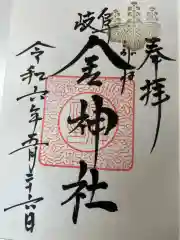 奉拝
岐阜
金神社
令和六年五月二十六日